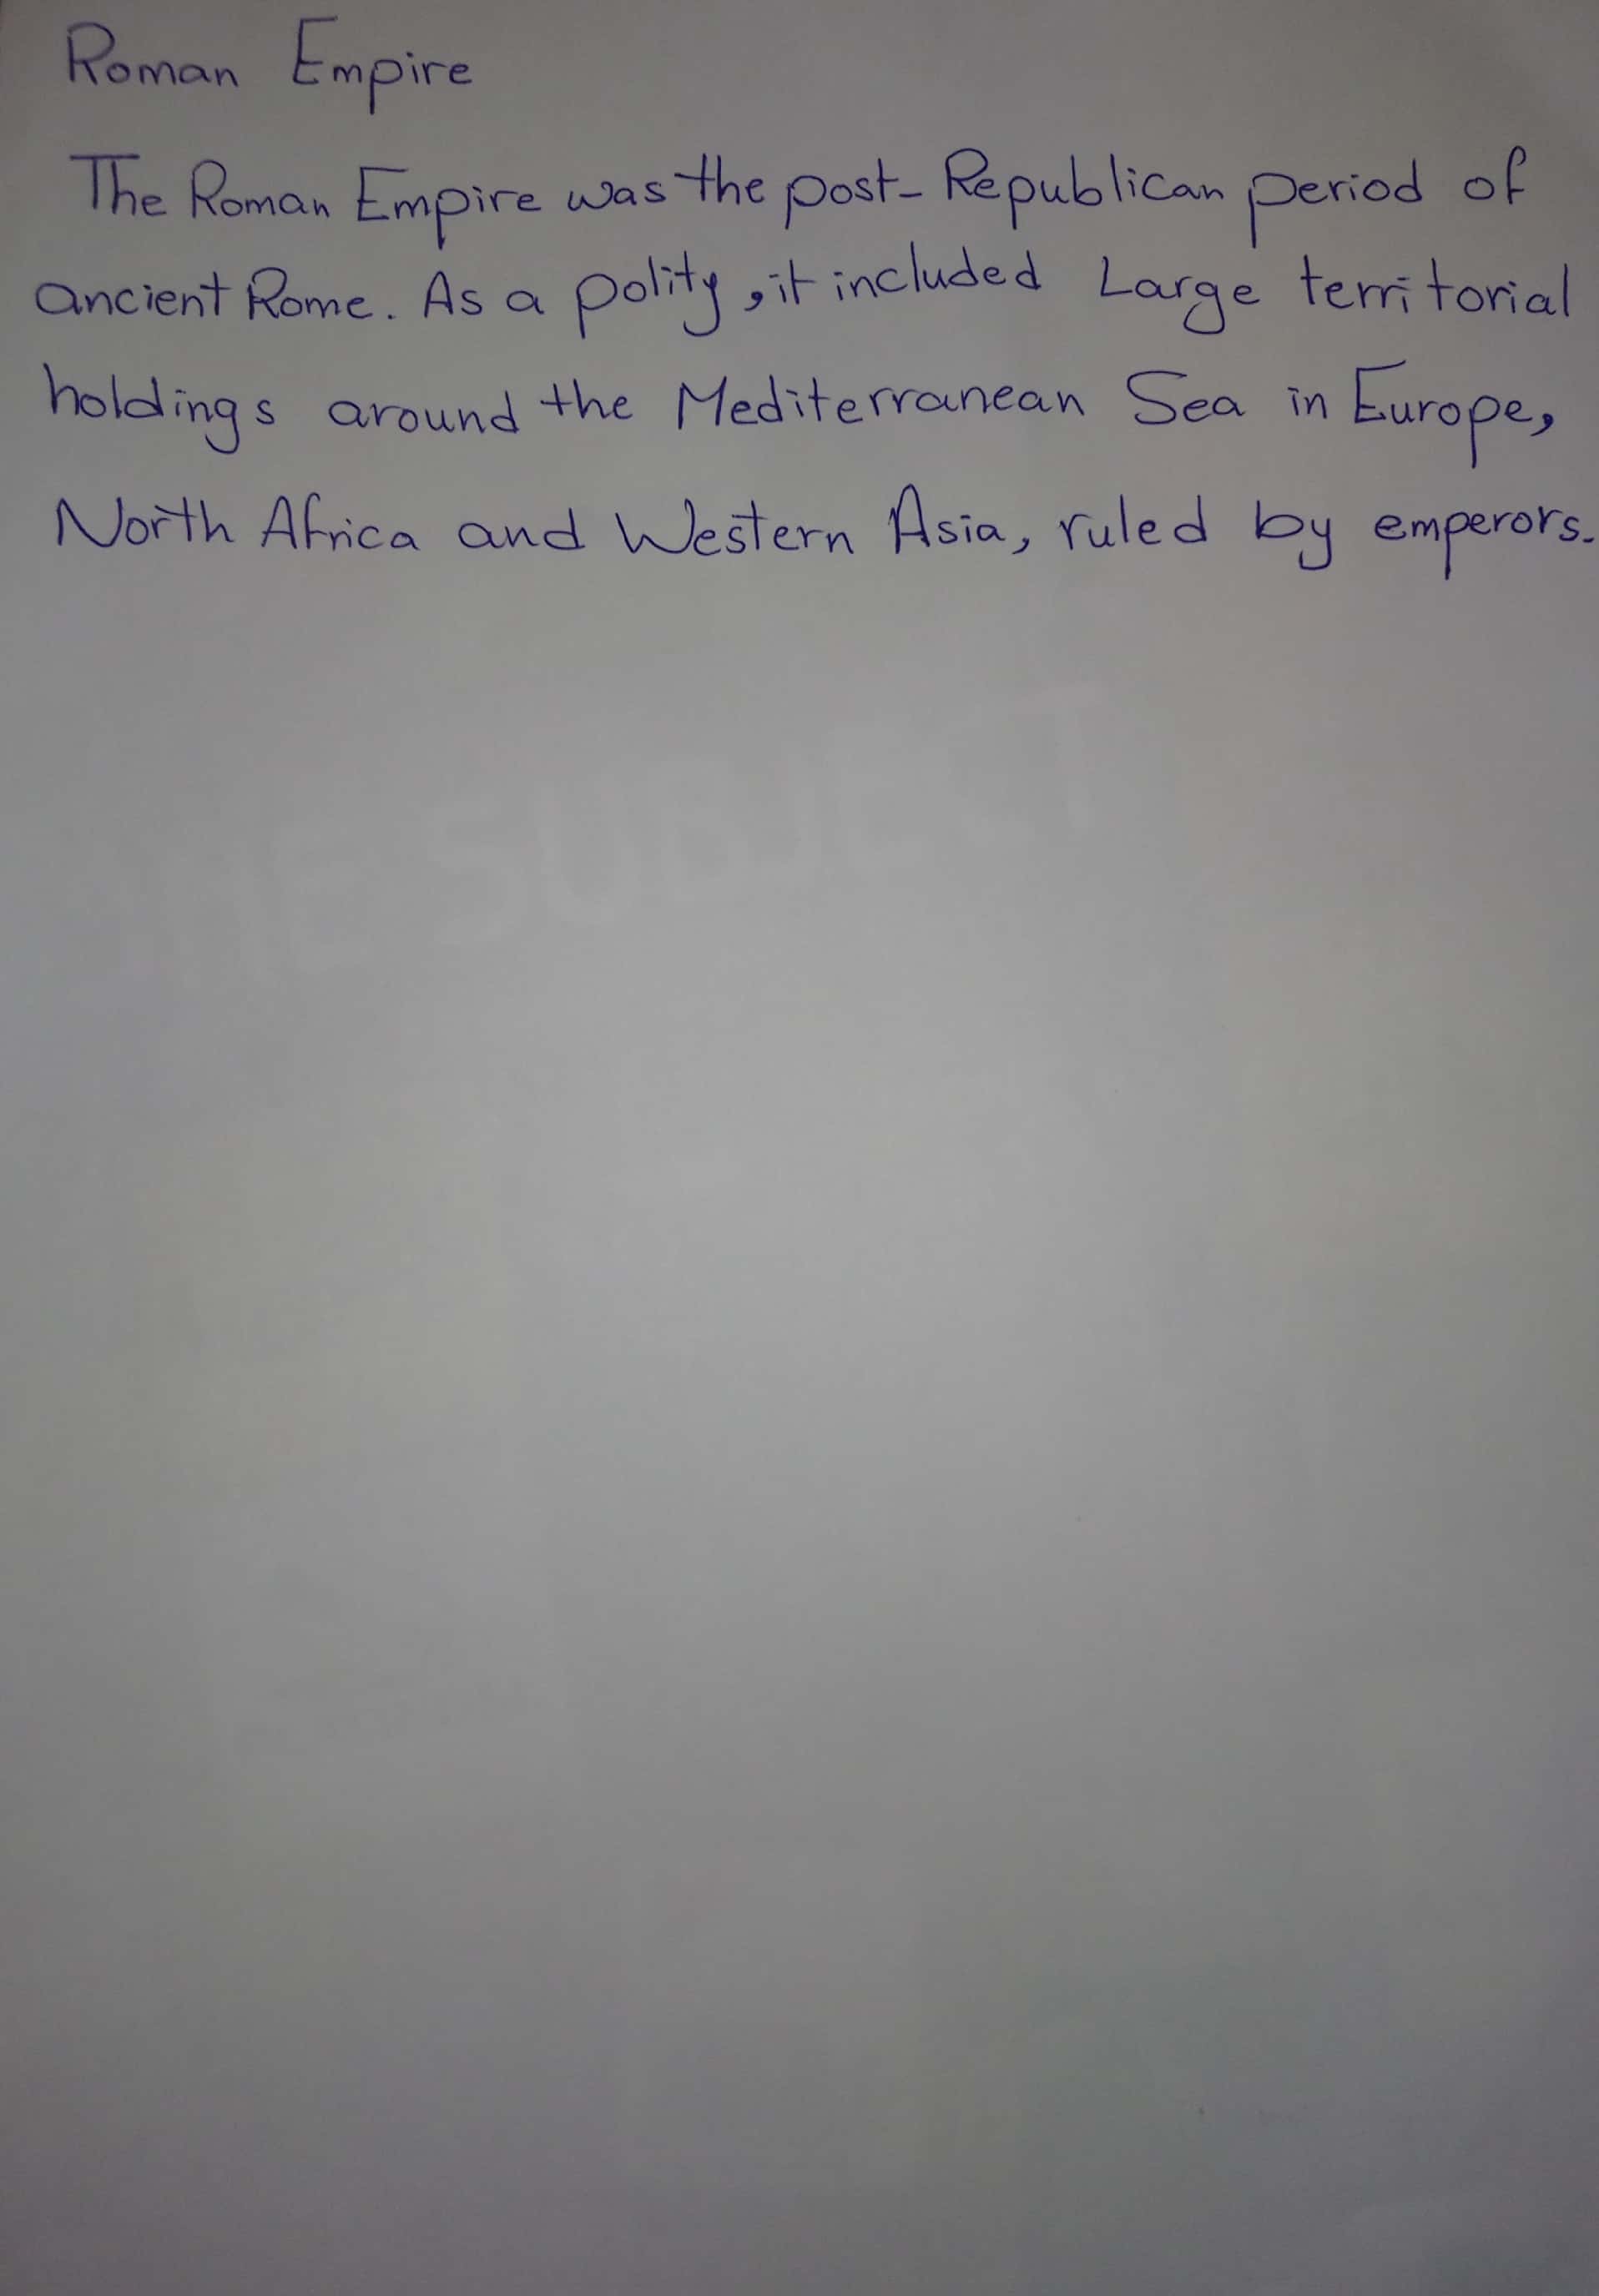 Roman Empire
The Roman Empire was the post-Republican period of
ancient Rome. As a polity, it included Large territorial
holdings around the Mediterranean Sea in Europe,
North Africa and Western Asia, ruled by emperors.